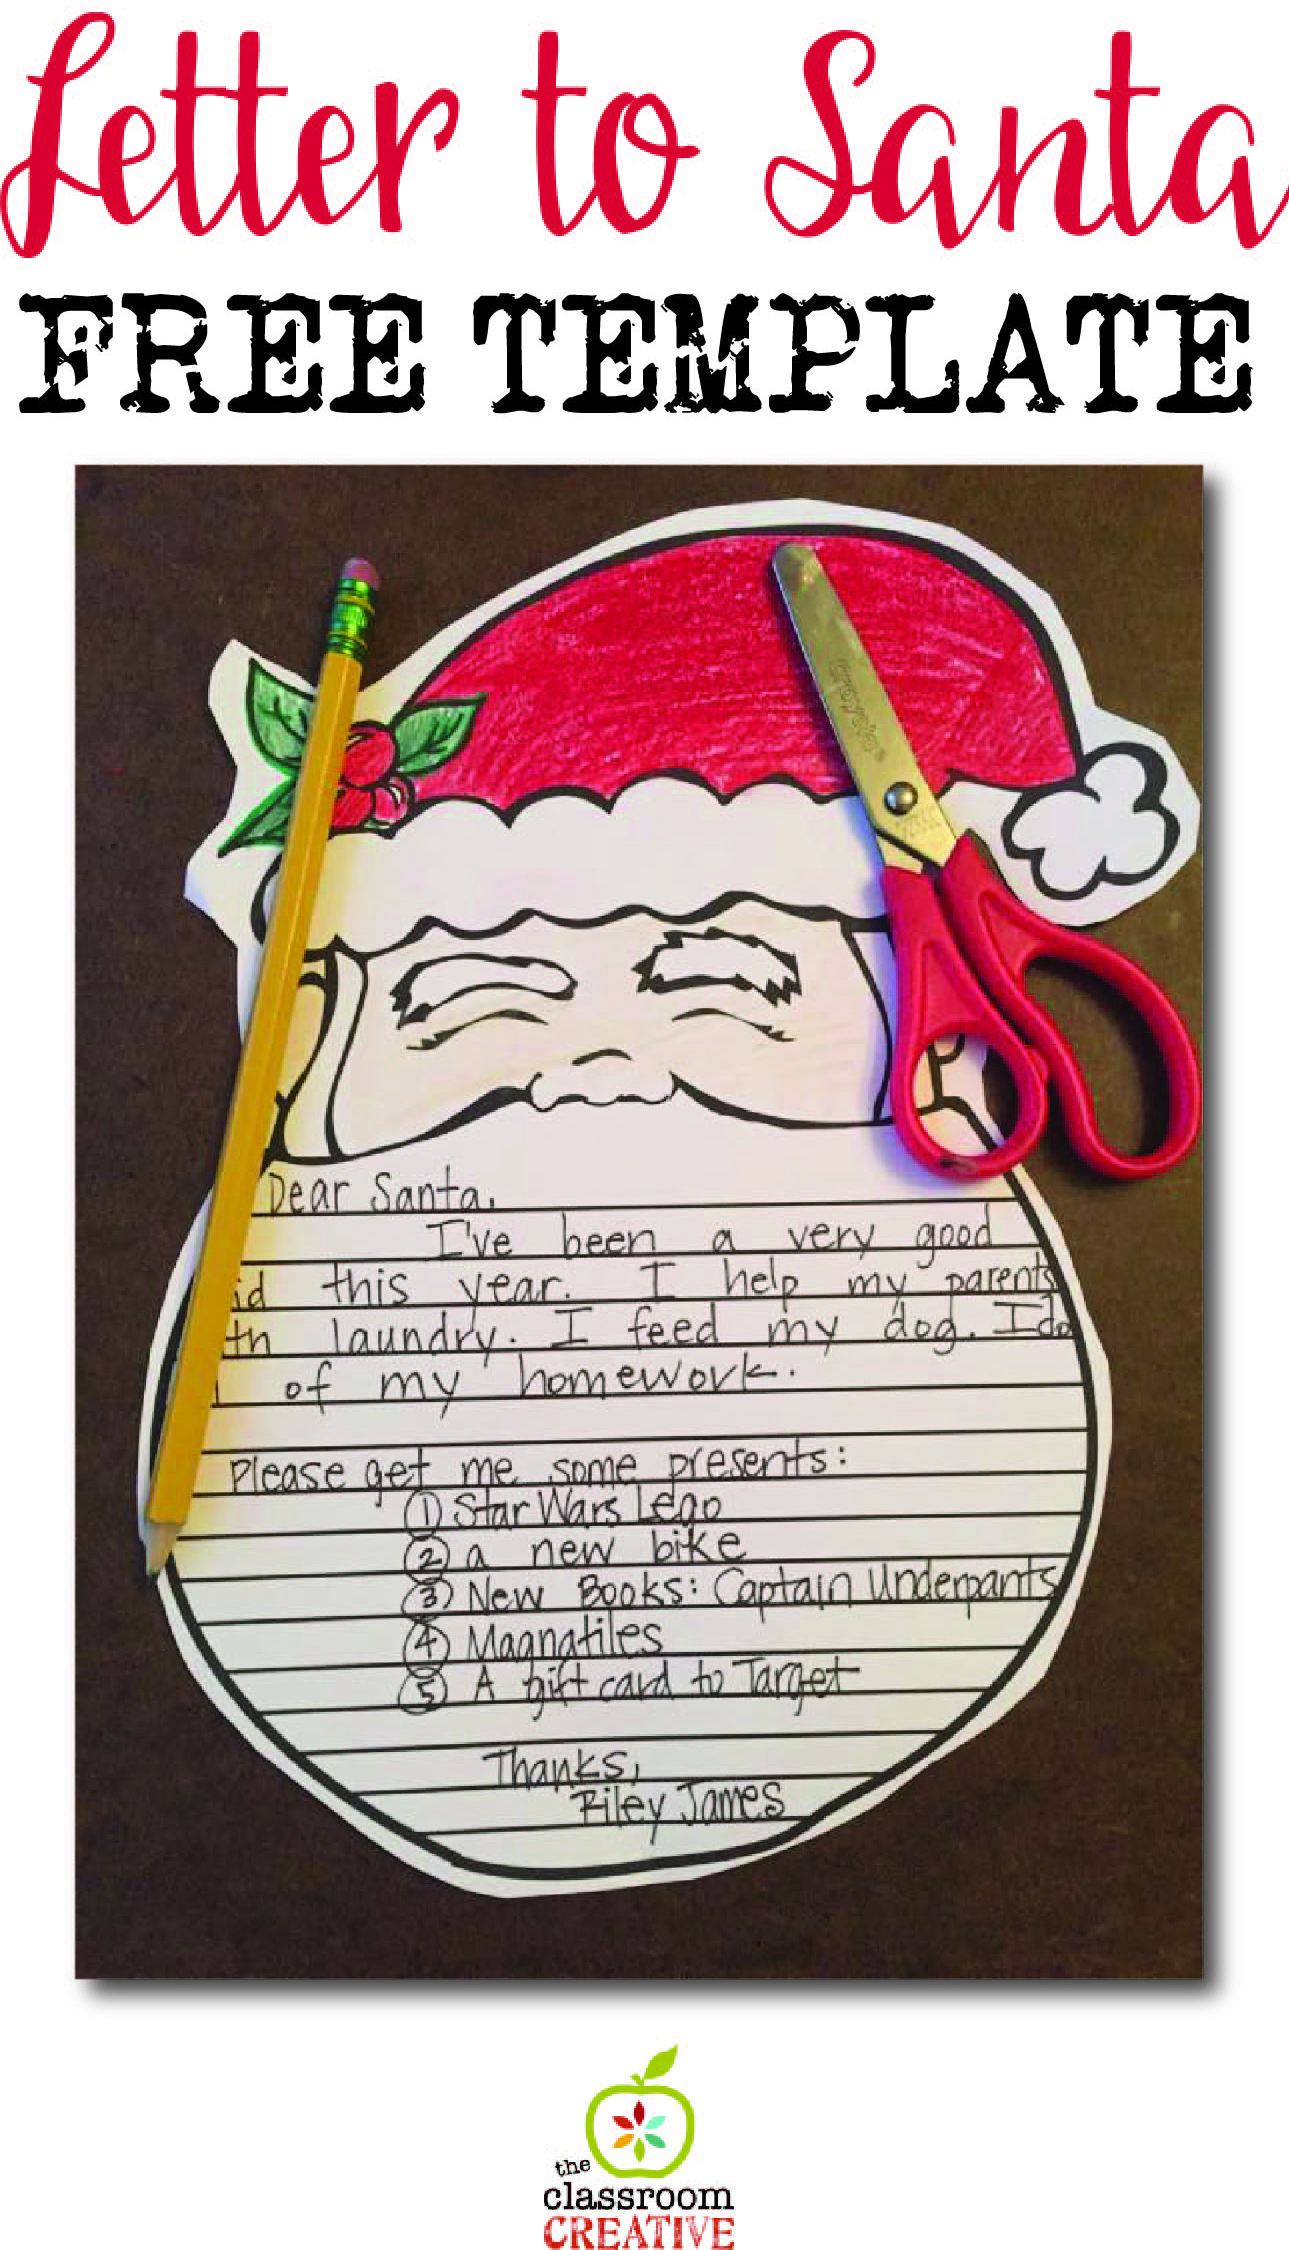 Letter to Santa
FREE TEMPLATE
Dear Santa,
I've been a very good
id this year. I help my parents
th laundry. I feed my dog. I do
l of my homework.
Please get me some presents:
1 Star Wars Lego
2 a new bike
3 New Books: Captain Underpants
4 Magnatiles
5 A gift card to Target
Thanks,
Riley James
the
classroom
CREATIVE